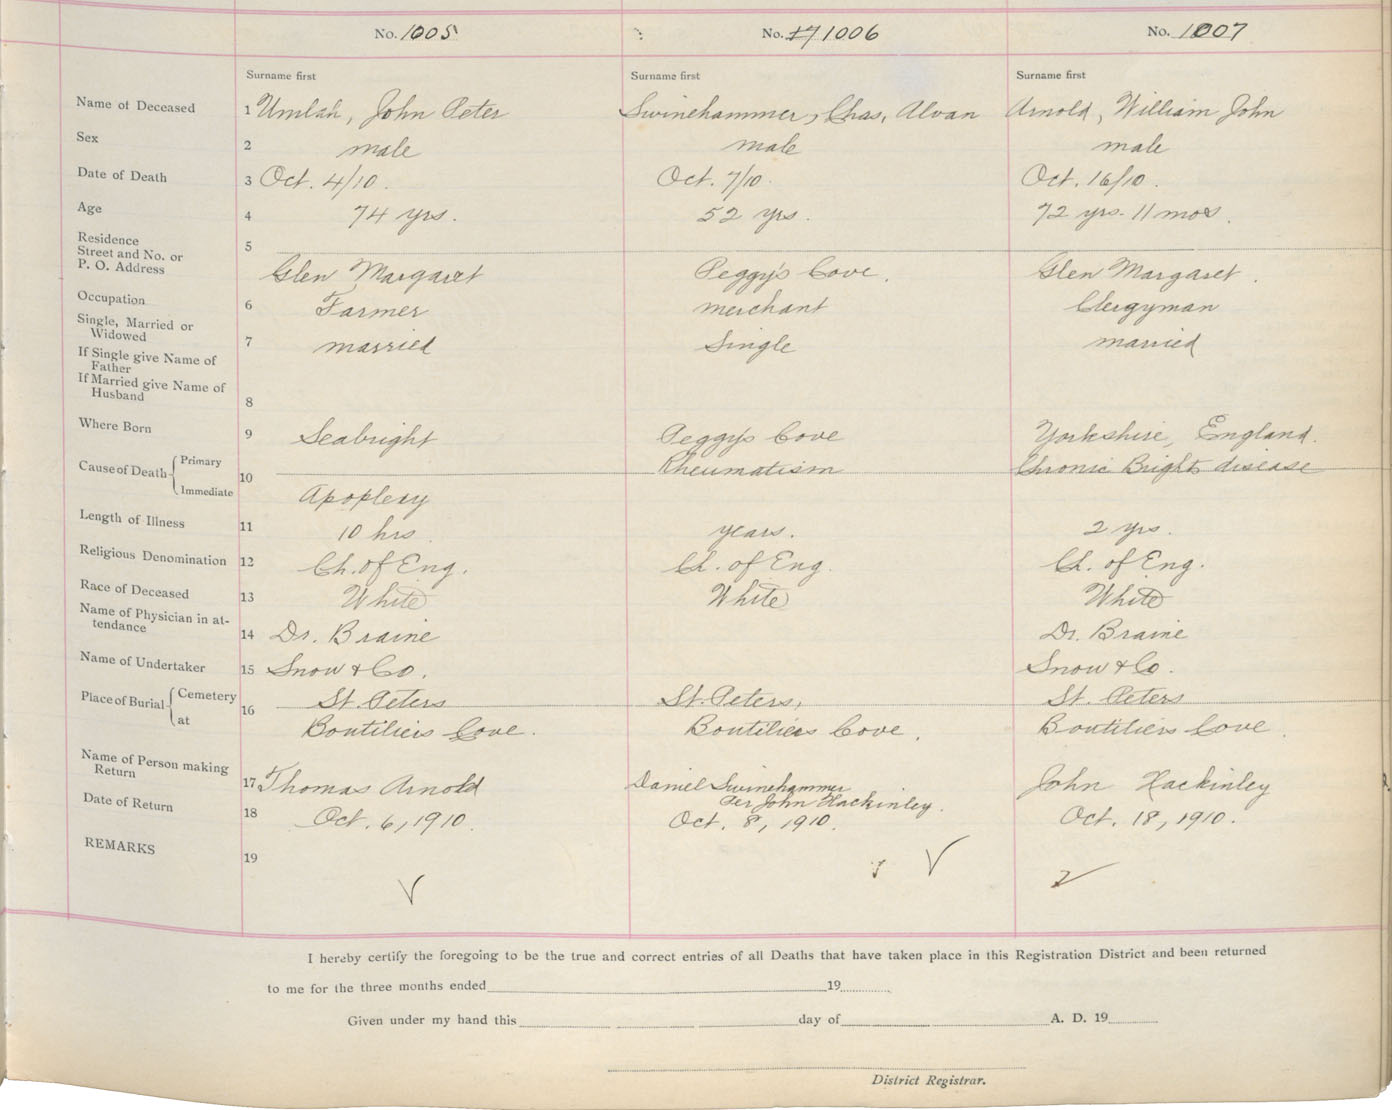 No. 1005 No. 17 1006 No. 1007
Surname first Surname first Surname first
Name of Deceased 1 Umlah, John Peter Swinehammer, Chas, Alvan Arnold, William John
Sex 2 male male male
Date of Death 3 Oct. 4/10. Oct. 7/10. Oct. 16/10.
Age 4 74 yrs. 52 yrs. 72 yrs. 11 mos.
Residence
Street and No. or 5
P. O. Address Glen Margaret Peggy's Cove. Glen Margaret.
Occupation 6 Farmer merchant Clergyman
Single, Married or
Widowed 7 married Single married
If Single give Name of
Father
If Married give Name of
Husband 8
Where Born 9 Seabright Peggy's Cove Yorkshire, England.
Cause of Death Primary 10 Rheumatism Chronic Brights disease
Immediate Apoplexy
Length of Illness 11 10 hrs. years. 2 yrs.
Religious Denomination 12 Ch. of Eng. Ch. of Eng. Ch. of Eng.
Race of Deceased 13 White White White
Name of Physician in at-
tendance 14 Dr. Braine Dr. Braine
Name of Undertaker 15 Snow & Co. Snow & Co.
Place of Burial Cemetery 16 St. Peters St. Peters, St. Peters
at Boutiliers Cove. Boutiliers Cove. Boutiliers Cove.
Name of Person making
Return 17 Thomas Arnold Daniel Swinehammer John Hackinley
Per John Hackinley.
Date of Return 18 Oct. 6, 1910. Oct. 8, 1910. Oct. 18, 1910.
REMARKS 19
I hereby certify the foregoing to be the true and correct entries of all Deaths that have taken place in this Registration District and been returned
to me for the three months ended 19
Given under my hand this day of A. D. 19
District Registrar.